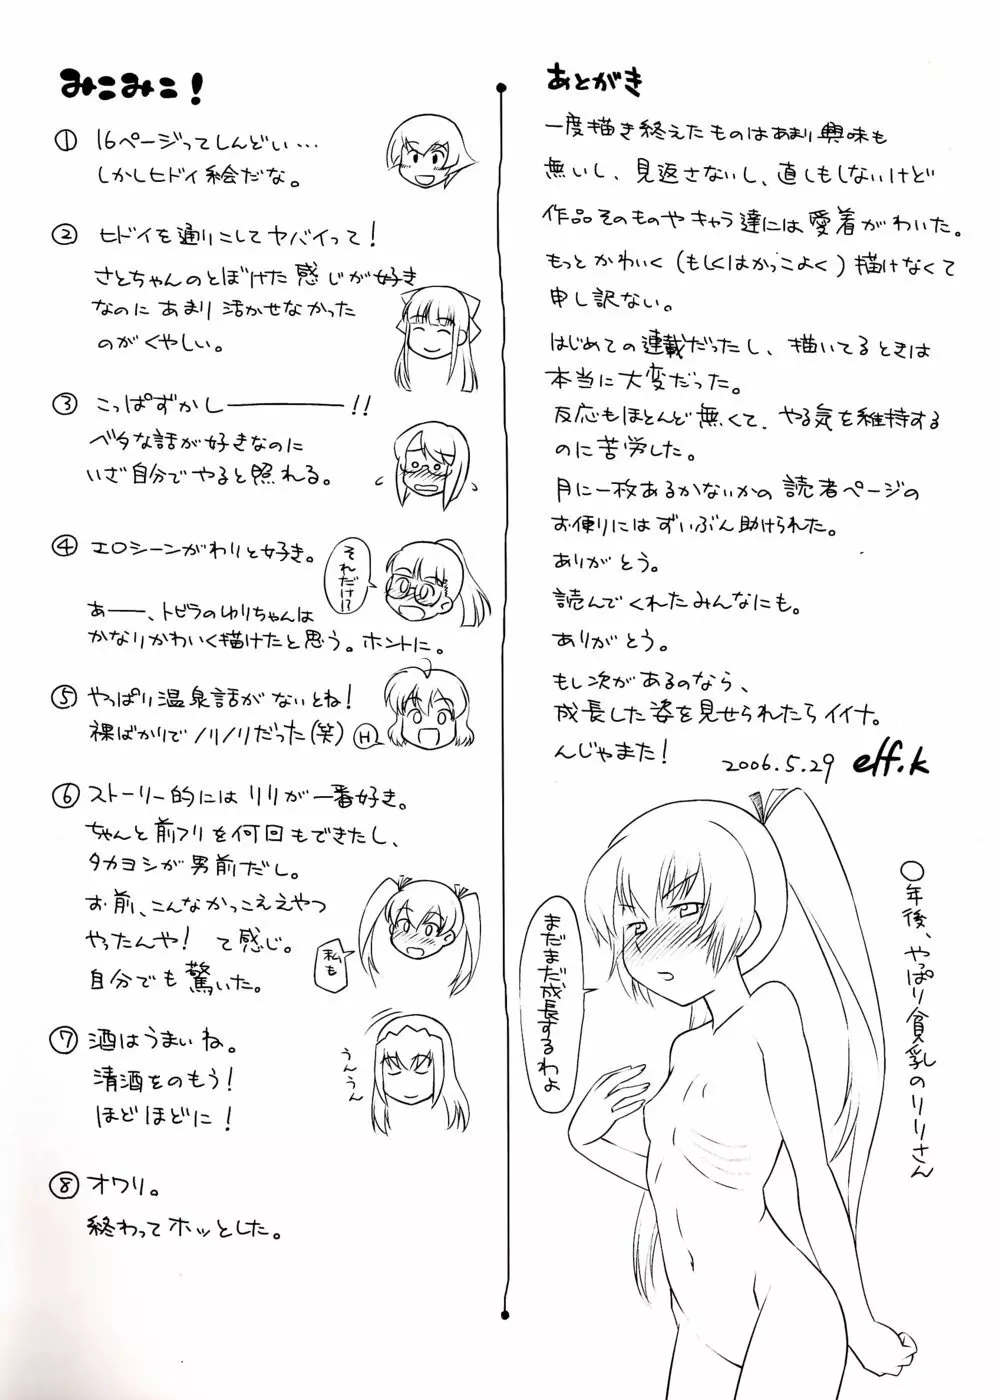 みこみこ!
① 16ページってしんどい…
しかしヒドイ絵だな。
② ヒドイを通りこしてヤバイって!
さとちゃんのとぼけた感じが好き
なのにあまり活かせなかった
のがくやしい。
③ こっぱずかしーーー!!
ベタな話が好きなのに
いざ自分でやると照れる。
④ エロシーンがわりと好き。
それだけ!?
あーー、トビラのゆりちゃんは
かなりかわいく描けたと思う。ホントに。
⑤ やっぱり温泉話がないとね!
裸ばかりでノリノリだった(笑)
H
⑥ ストーリー的にはリリが一番好き。
ちゃんと前フリを何回もできたし、
タカヨシが男前だし。
お前、こんなかっこええやつ
やったんや! て感じ。
自分でも驚いた。
私も
⑦ 酒はうまいね。
清酒をのもう!
ほどほどに!
うんうん
⑧ オワリ。
終わってホッとした。
あとがき
一度描き終えたものはあまり興味も
無いし、見返さないし、直しもしないけど
作品そのものやキャラ達には愛着がわいた。
もっとかわいく(もしくはかっこよく)描けなくて
申し訳ない。
はじめての連載だったし、描いてるときは
本当に大変だった。
反応もほとんど無くて、やる気を維持する
のに苦労した。
月に一枚あるかないかの読者ページの
お便りにはずいぶん助けられた。
ありがとう。
読んでくれたみんなにも。
ありがとう。
もし次があるのなら、
成長した姿を見せられたらイイナ。
んじゃまた!
2006.5.29 elf.k
○年後、やっぱり貧乳のリリさん
まだまだ成長するわよ